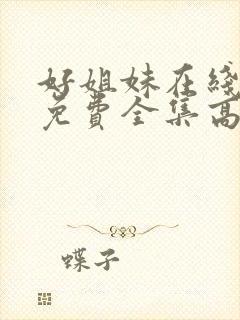 好姐妹在线
免费全集高
蝶子